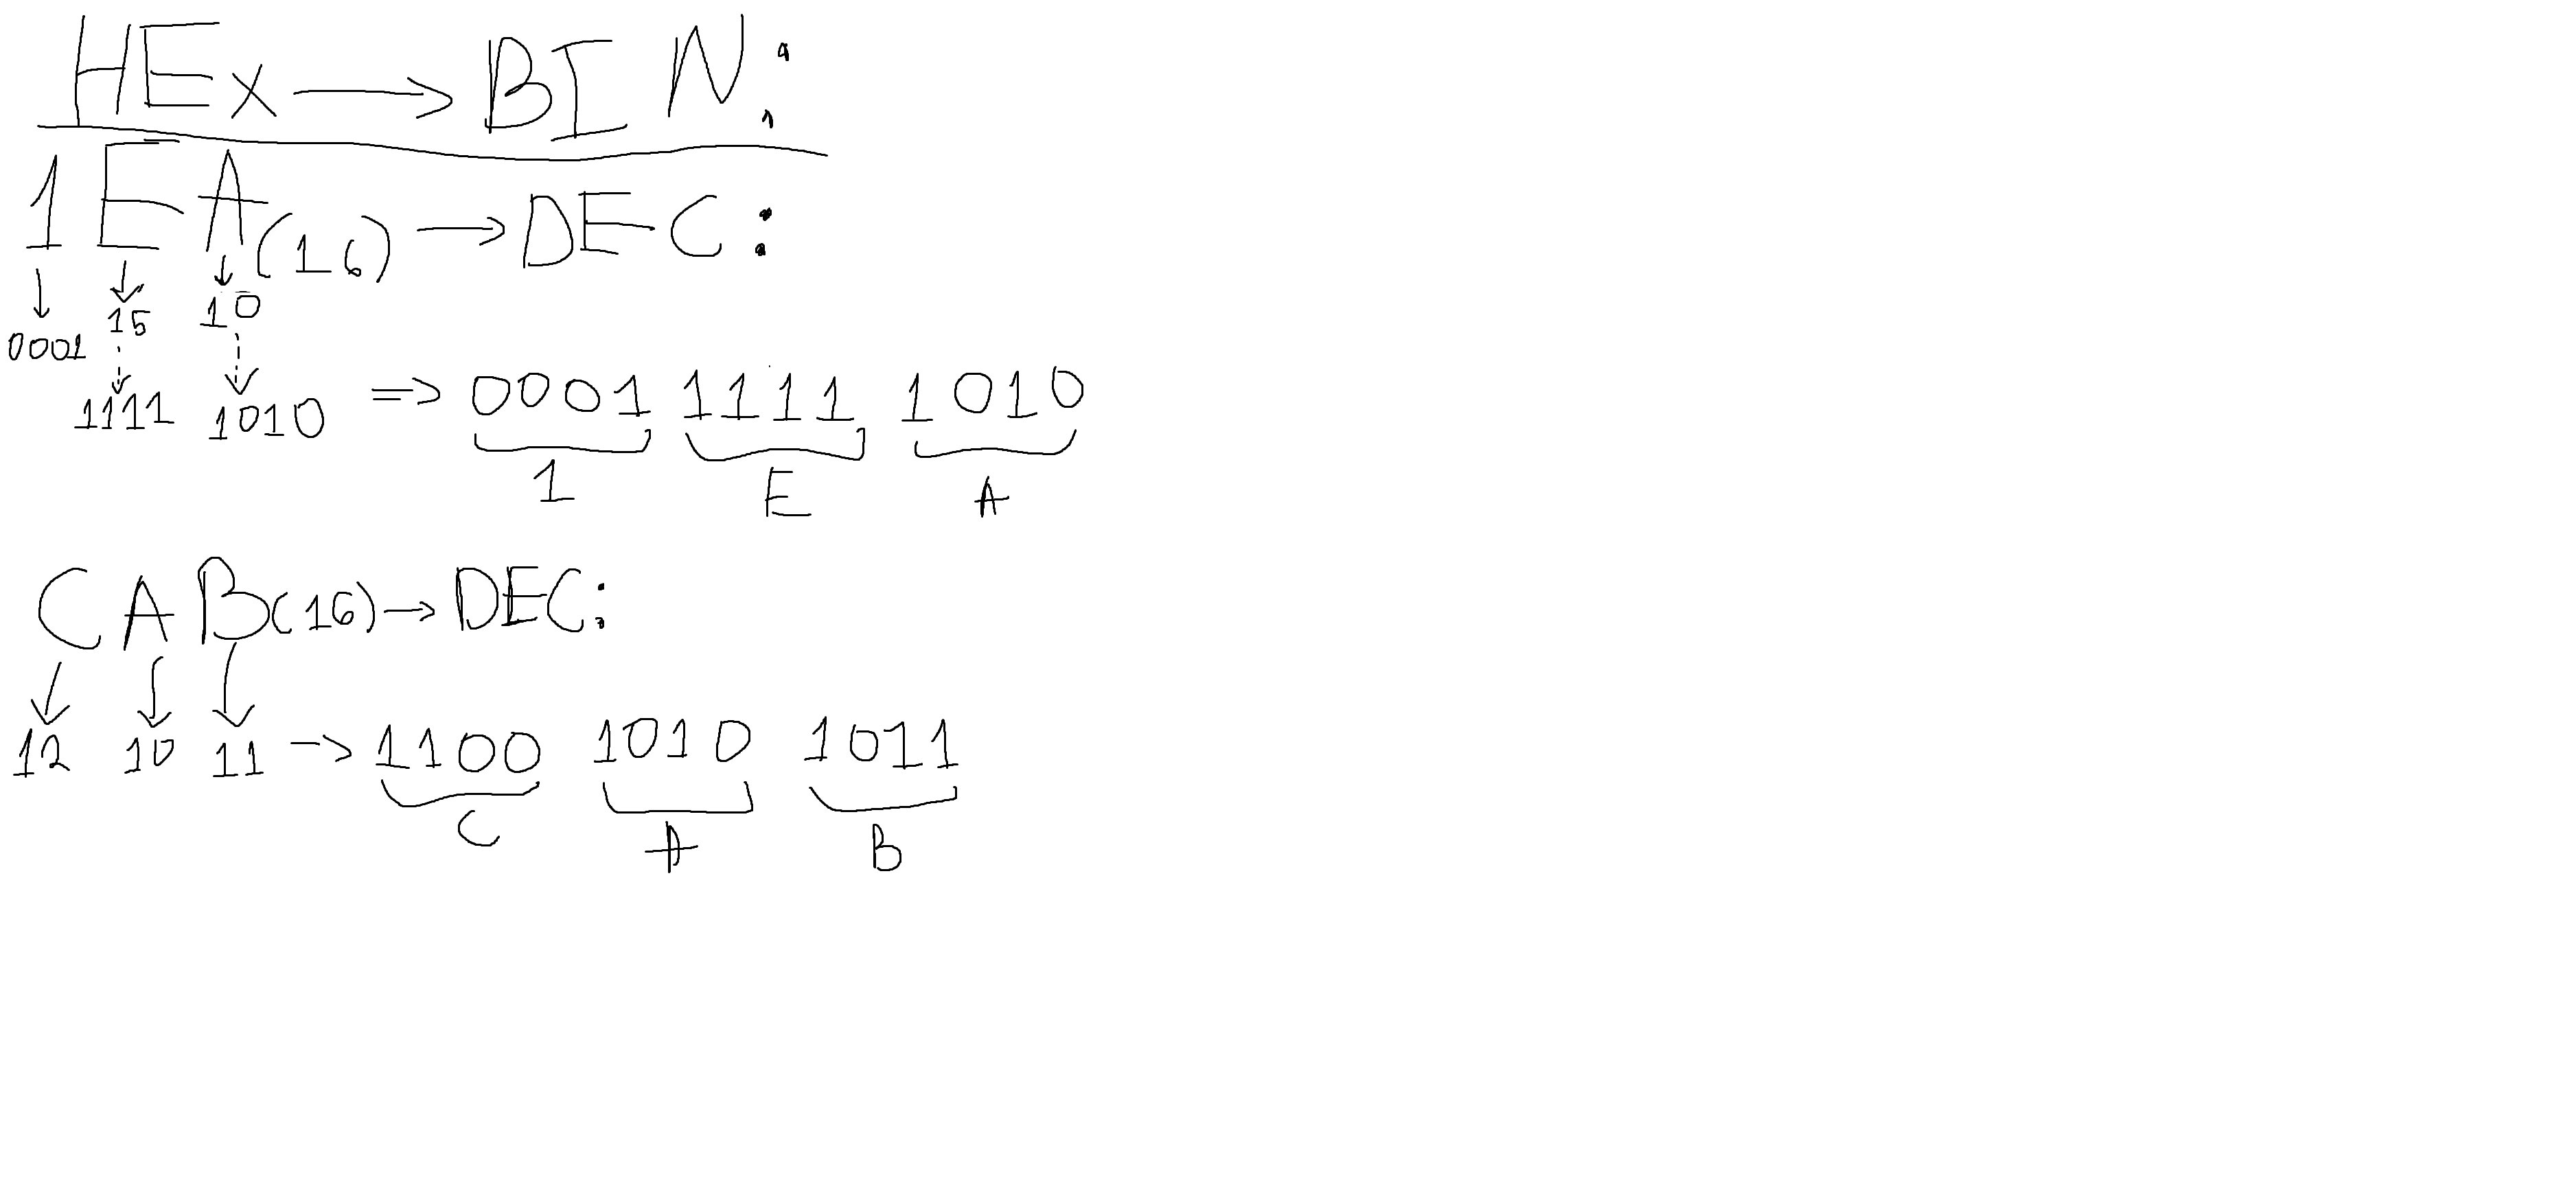 HEx → BIN:
1EA(16) → DEC:
↓ ↓ ↓
0001 15 10
1111 1010 => 0001 1111 1010
1 E A
CAB(16) → DEC:
↓ ↓ ↓
12 10 11 → 1100 1010 1011
C A B